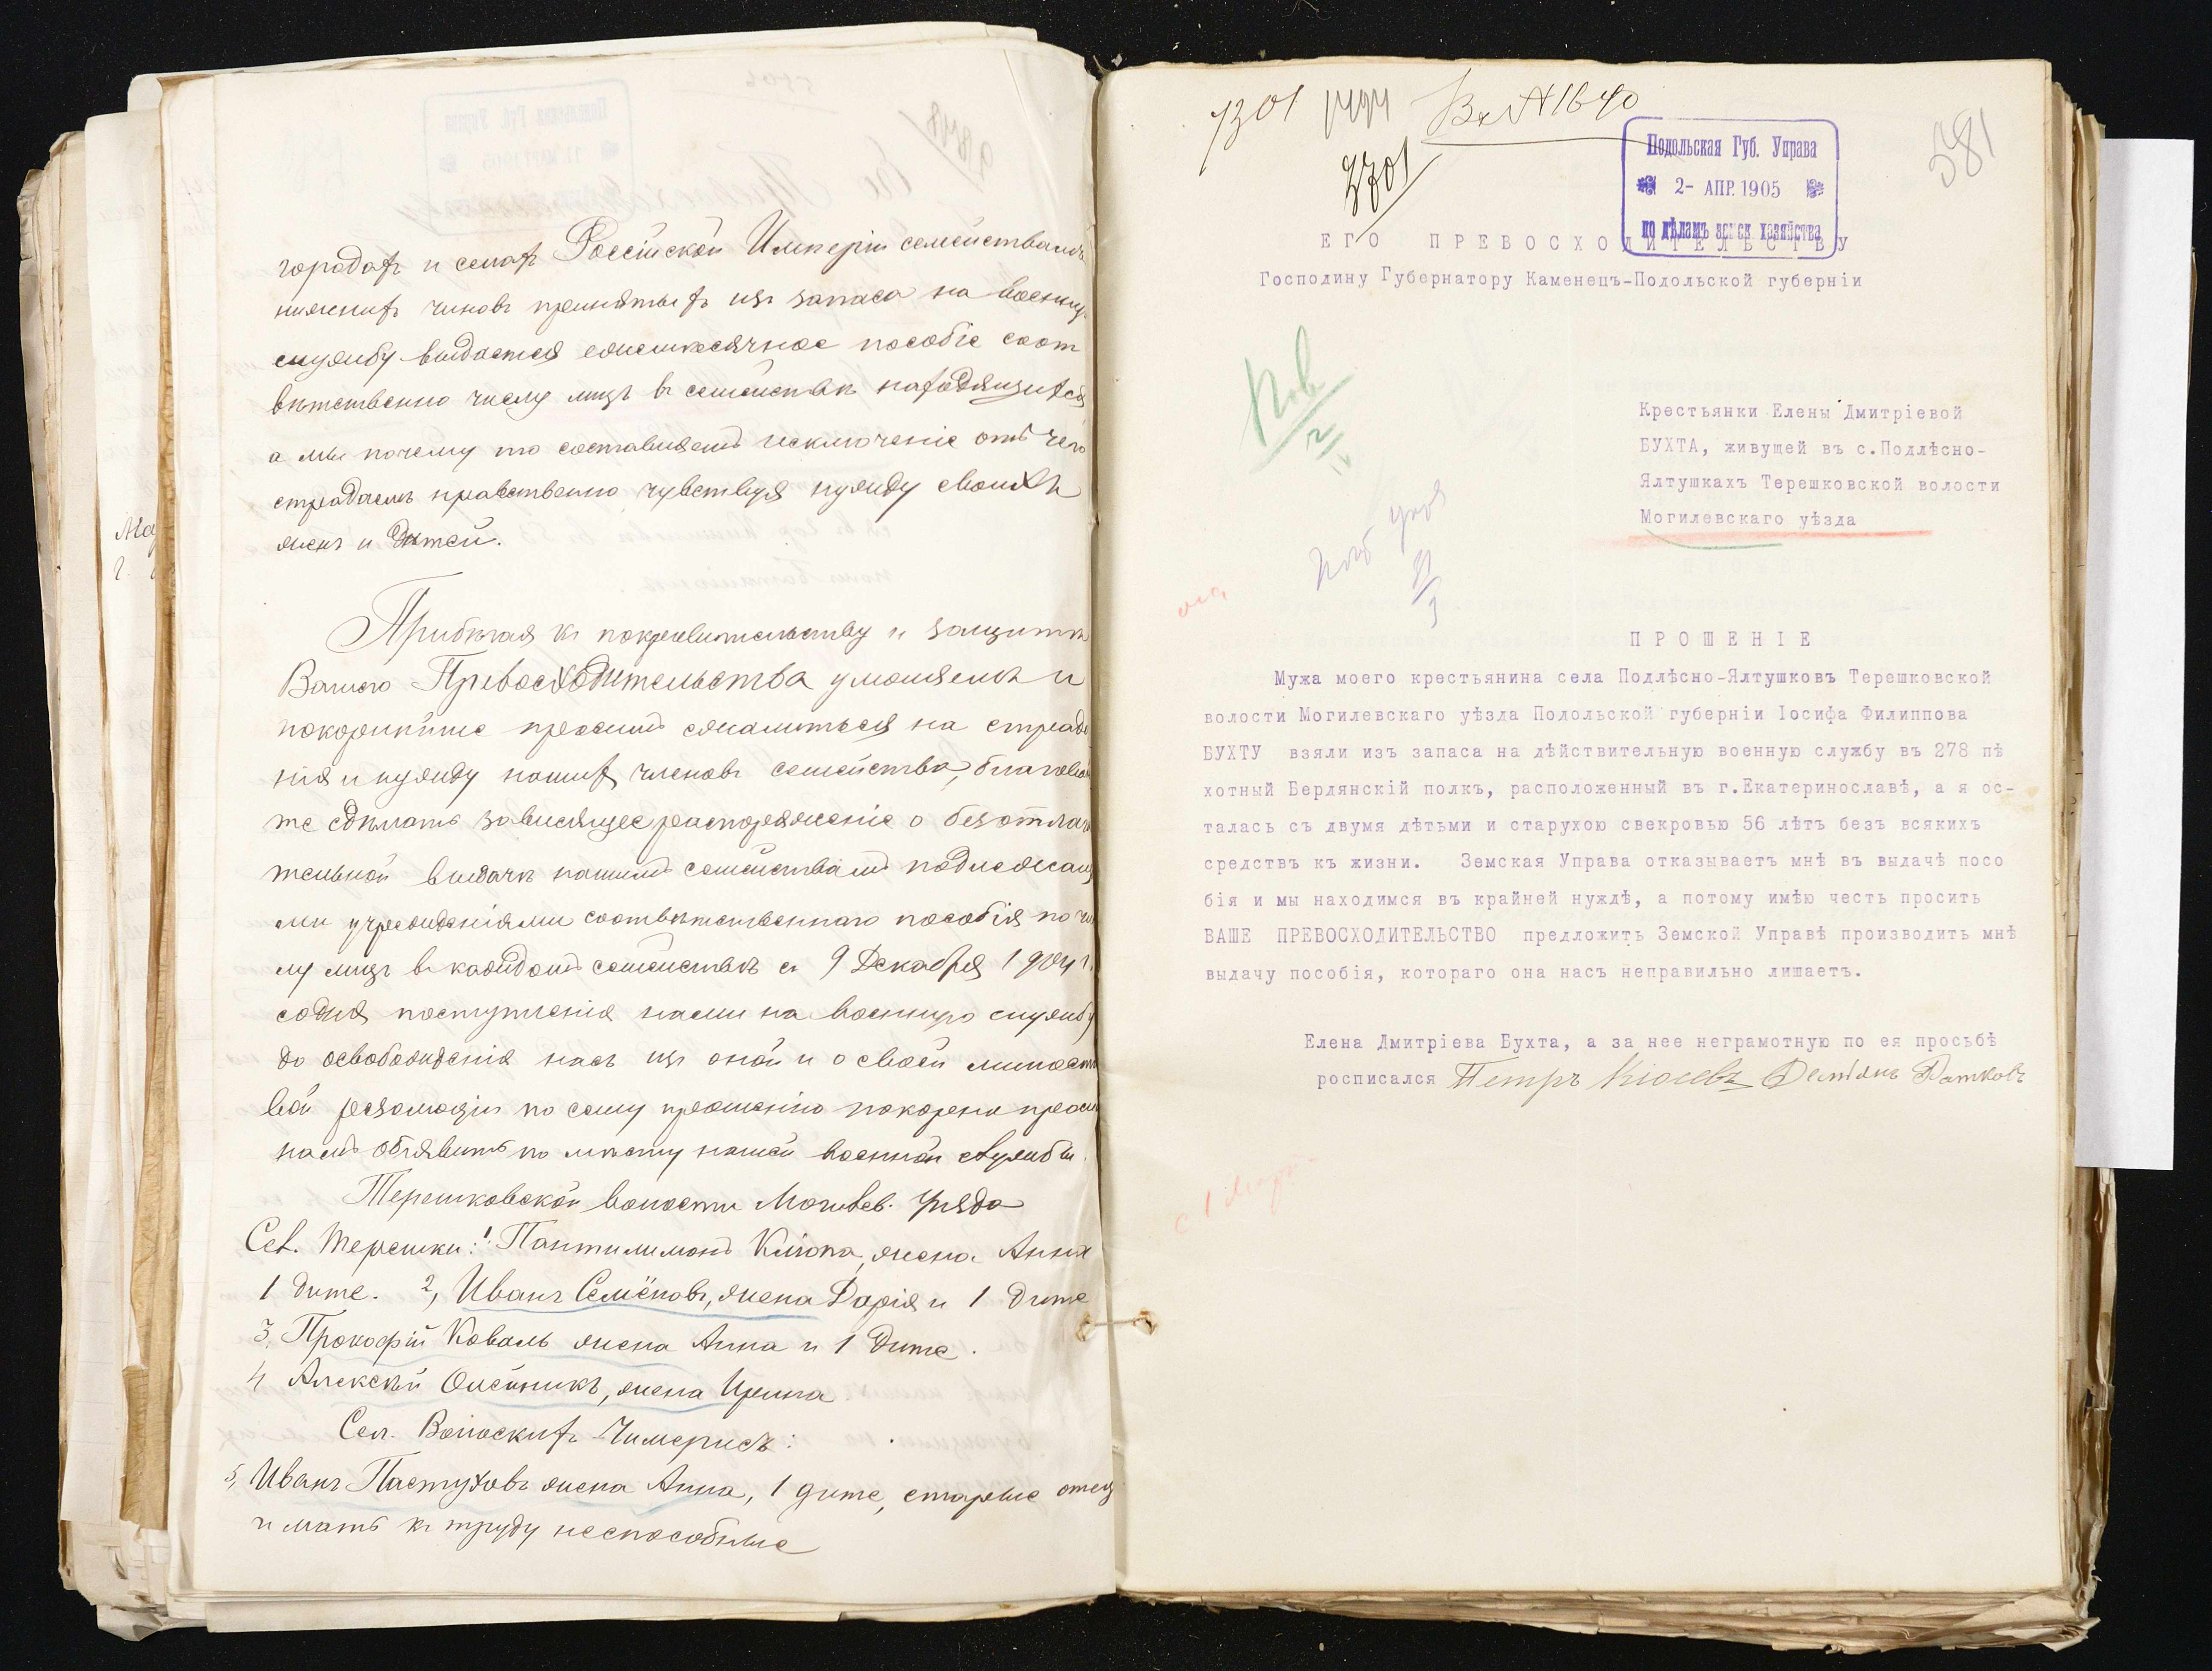 городахъ и селахъ Россійской Имперіи семействамъ
нижнихъ чиновъ принятыхъ изъ запаса на военную
службу выдается ежемѣсячное пособіе соот
вѣтственно числу лицъ въ семействѣ находящихся
а мы почему то составляемъ исключеніе отъ чего
страдаемъ нравственно чувствуя нужду своихъ
женъ и дѣтей.
Прибѣгая къ покровительству и защитѣ
Вашего Превосходительства умоляемъ и
покорнѣйше просимъ сжалиться на страда
нія и нужду нашихъ членовъ семейства, благоволи
те сдѣлать зависящее распоряженіе о безотлага
тельной выдачѣ нашимъ семействамъ подлежащи
ми учрежденіями соотвѣтственнаго пособія по чис
лу лицъ въ каждомъ семействѣ съ 9 Декабря 1904 г.
со дня поступленія нами на военную службу
до освобожденія насъ изъ оной и о своей милости
вой резолюціи по сему прошенію покорно просимъ
намъ объявить по мѣсту нашей военной службы.
Терешковской волости Могилев. уѣзда
Сел. Терешки: 1. Пантилимонъ Кліопа, жена Анна
1 дите. 2, Иванъ Семёновъ, жена Дарія и 1 дите
3, Прокофій Коваль жена Анна и 1 дите.
4 Алексѣй Олейникъ, жена Ирина.
Сел. Волоскихъ-Чимерисъ:
5, Иванъ Пастуховъ жена Анна, 1 дите, старые отец
и мать къ труду неспособные
1301 Вх № 1640
3701
581
Подольская Губ. Управа
2- АПР. 1905
по дѣламъ земск. хозяйства
ЕГО ПРЕВОСХОДИТЕЛЬСТВУ
Господину Губернатору Каменецъ-Подольской губерніи
Крестьянки Елены Дмитріевой
БУХТА, живущей въ с.Подлѣсно-
Ялтушкахъ Терешковской волости
Могилевскаго уѣзда
ПРОШЕНІЕ
Мужа моего крестьянина села Подлѣсно-Ялтушковъ Терешковской
волости Могилевскаго уѣзда Подольской губерніи Іосифа Филиппова
БУХТУ взяли изъ запаса на дѣйствительную военную службу въ 278 пѣ
хотный Бердянскій полкъ, расположенный въ г.Екатеринославѣ, а я ос-
талась съ двумя дѣтьми и старухою свекровью 56 лѣтъ безъ всякихъ
средствъ къ жизни. Земская Управа отказываетъ мнѣ въ выдачѣ посо
бія и мы находимся въ крайней нуждѣ, а потому имѣю честь просить
ВАШЕ ПРЕВОСХОДИТЕЛЬСТВО предложить Земской Управѣ производить мнѣ
выдачу пособія, котораго она насъ неправильно лишаетъ.
Елена Дмитріева Бухта, а за нее неграмотную по ея просьбѣ
росписался Петръ